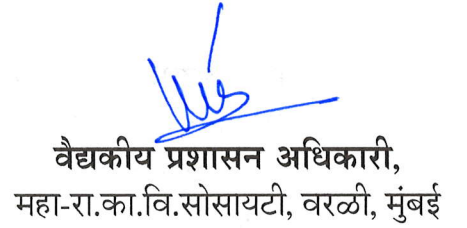 वैद्यकीय प्रशासन अधिकारी,
महा-रा.का.वि.सोसायटी, वरळी, मुंबई